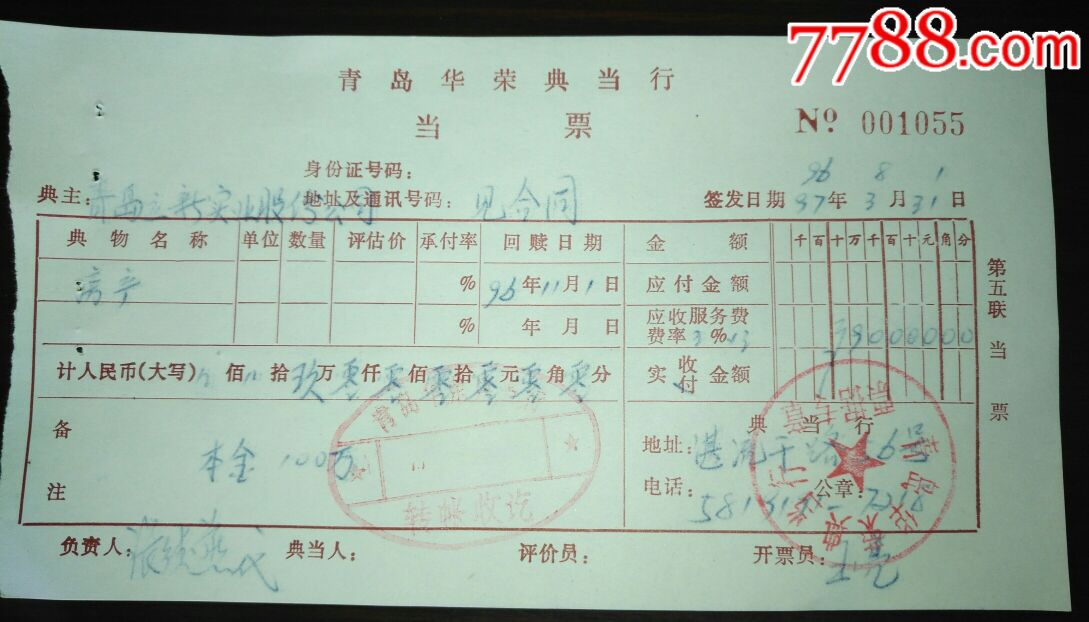 7788.com
青岛华荣典当行
当票
№ 001055
身份证号码：
96 8 1
典主：青岛立新实业股份公司 地址及通讯号码：见合同 签发日期 97年3月31日
典物名称 单位 数量 评估价 承付率 回赎日期 金额 千百十万千百十元角分
房产 % 96年11月1日 应付金额
% 年 月 日 应收服务费
费率3%×3 9000000
计人民币(大写) 佰 拾玖万零仟零佰零拾零元零角零分 实收付金额
第五联 当票
备注
本金100万
青岛
转帐收讫
典当行
地址：湛流干路56号
电话：
公章：
负责人： 典当人： 评价员： 开票员：